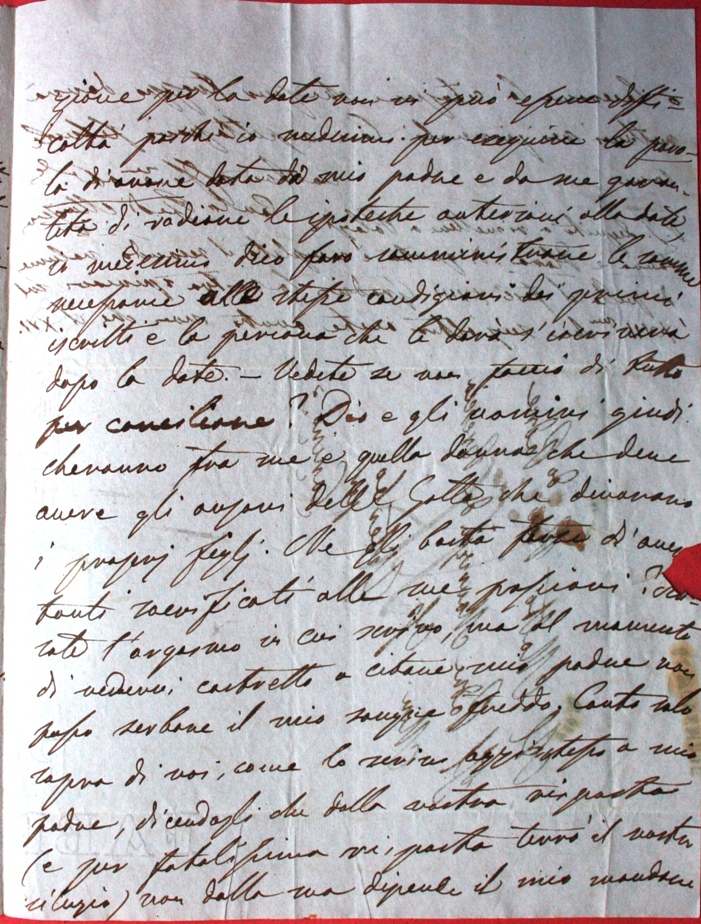 zione per la dote non vi può essere diffi=
coltà perchè io medesimo per eseguire la paro-
la d'onore data da mio padre e da me garan-
tita di radiare le ipoteche anteriori alla dote
io medesimo dico farò somministrare le somme
necessarie alle stesse condizioni dei primi
iscritti e la persona che le darà s'inscriverà
dopo la dote. – Vedete se non faccio di tutto
per conciliare? Dio e gli uomini giudi
cheranno fra me e quella donna che deve
avere gli della Gatta che divorano
i proprj figlj. Ne gli basta forse d'aver
tanti sacrificati alle sue passioni?
rate l'orgasmo in cui scrivo, ma al momento
di vedermi costretto a citare mio padre non
posso serbare il mio sangue freddo, Conto solo
sopra di voi, come lo scrivo oggi stesso a mio
padre, dicendogli che dalla vostra risposta
(e per fatalissima risposta terrò il vostro
silenzio) non dalla sua dipende il mio mandare